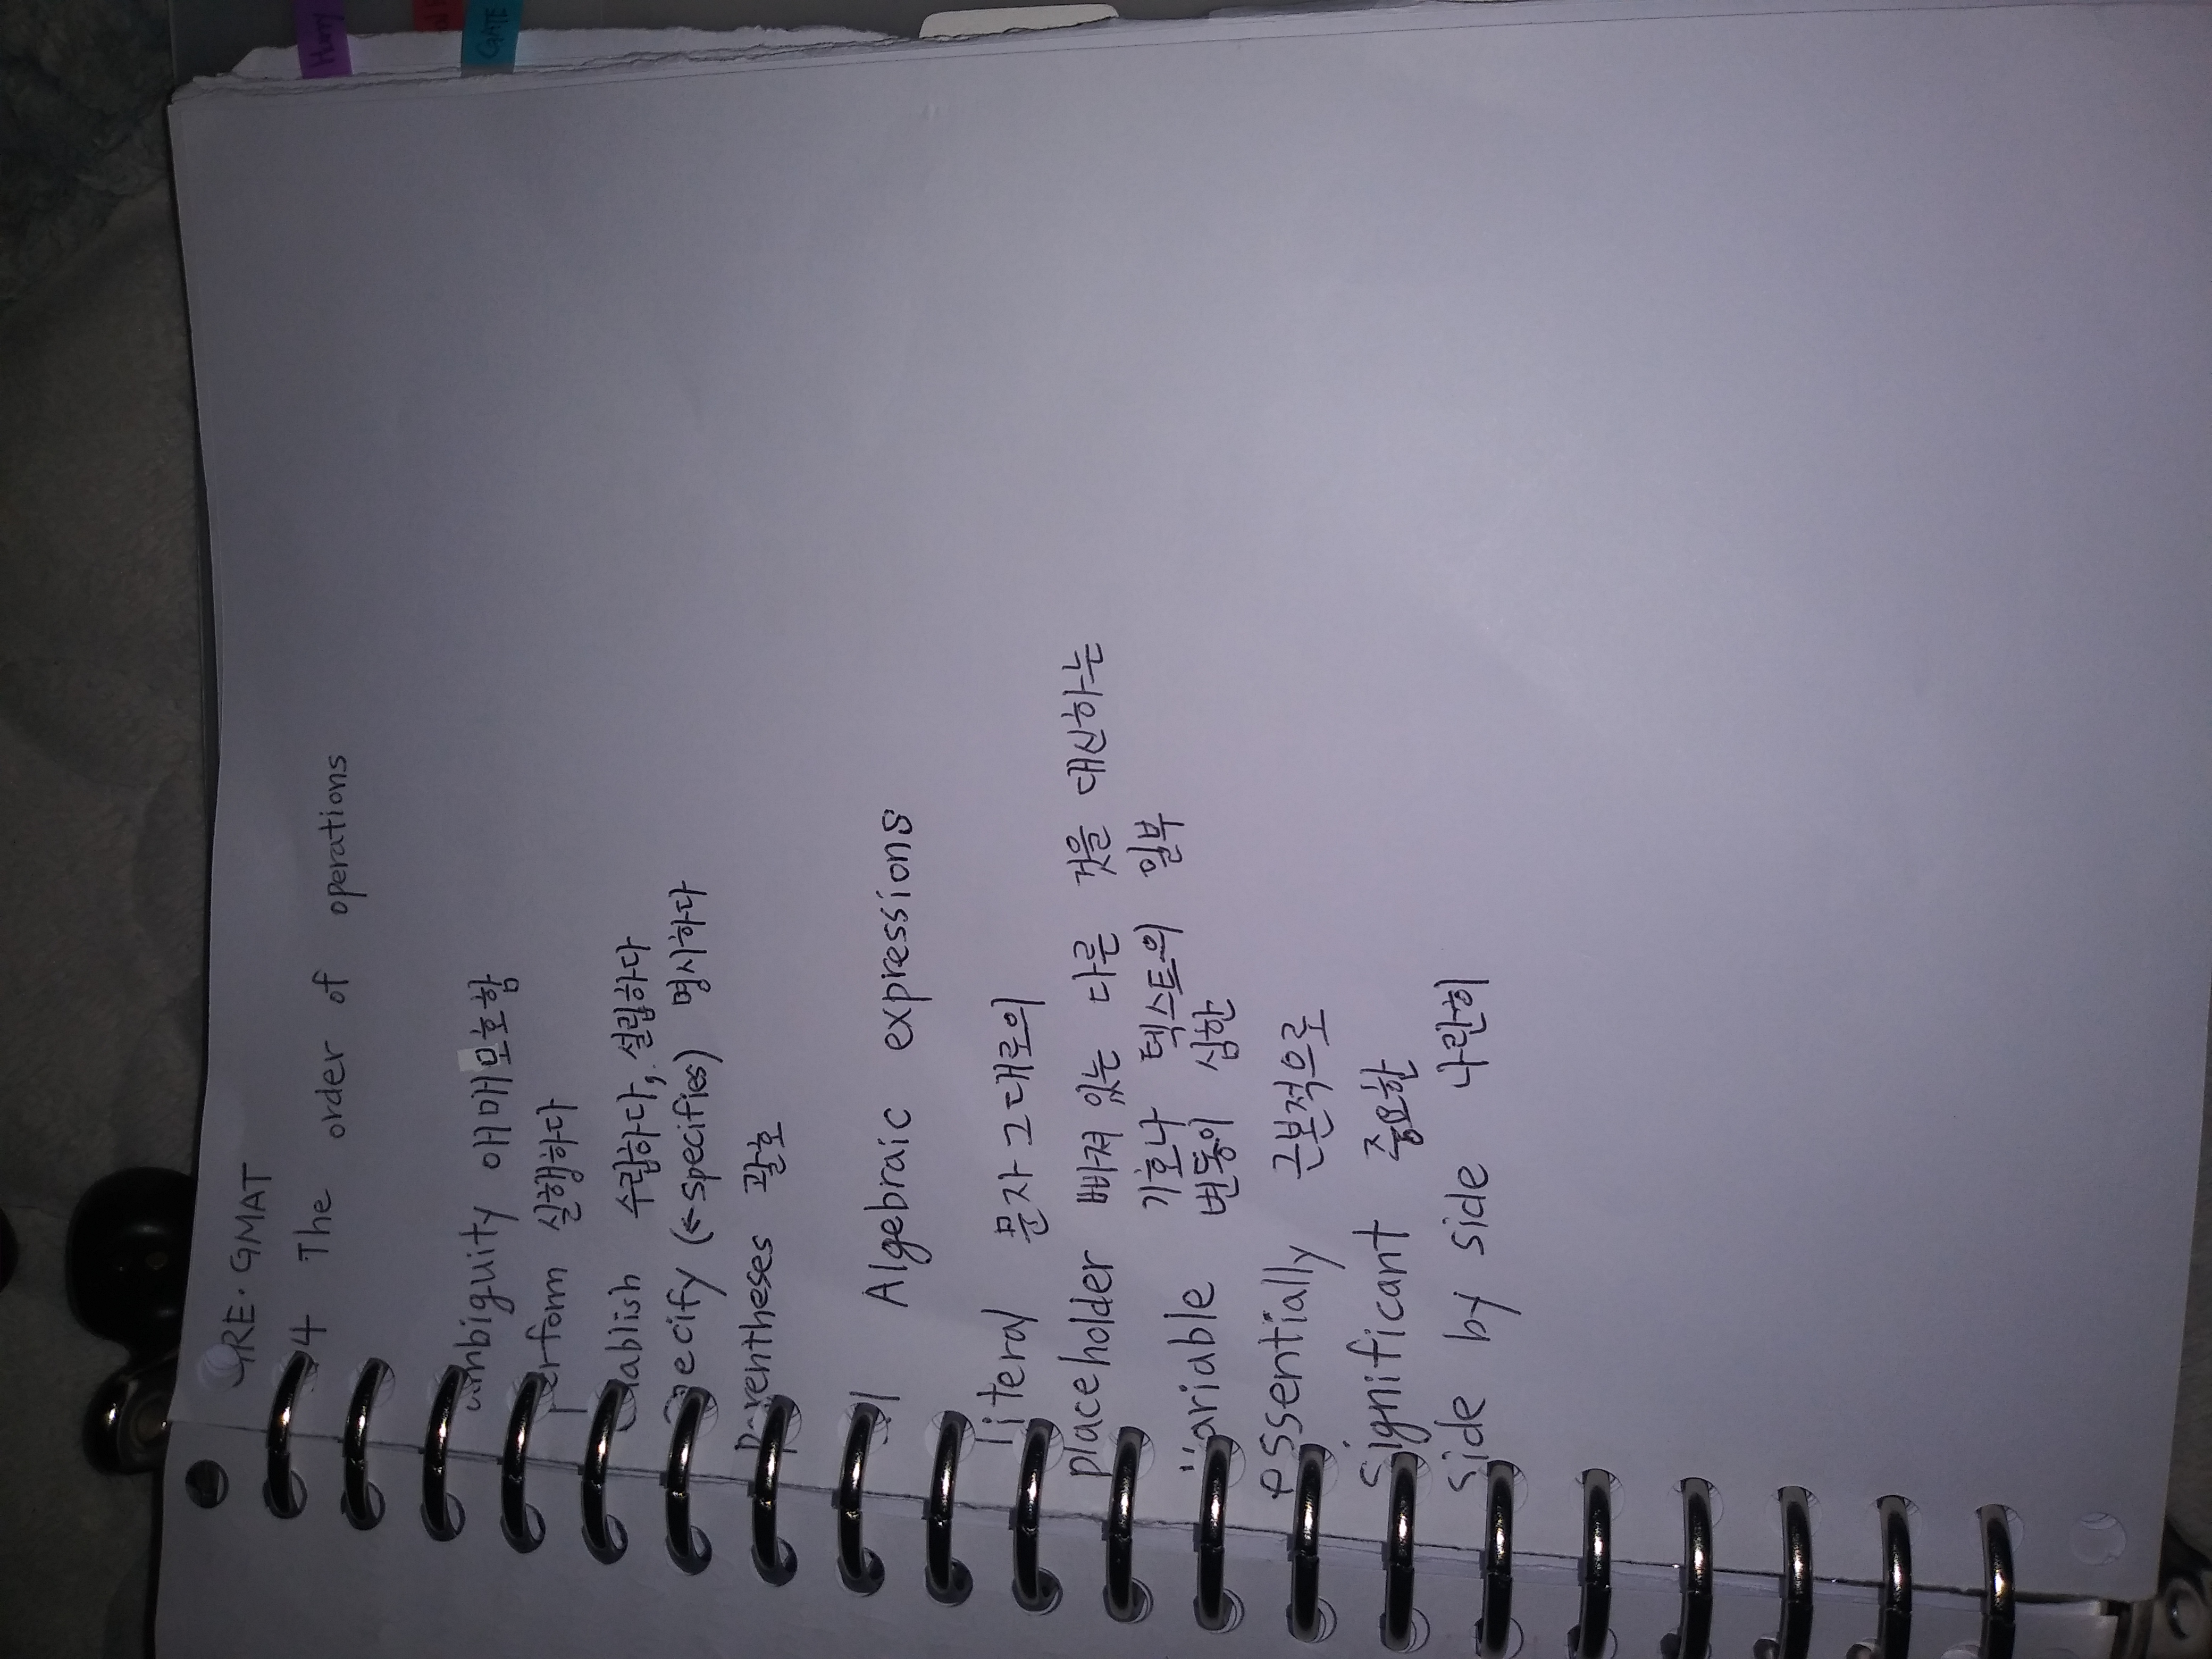 GRE·GMAT
4 The order of operations
ambiguity 애매모호함
perform 실행하다
establish 수립하다, 설립하다
specify (← specifies) 명시하다
parentheses 괄호
1 Algebraic expressions
literal 문자 그대로의
placeholder 빠져 있는 다른 것을 대신하는
기호나 텍스트의 일부
variable 변동이 심한
essentially 근본적으로
significant 중요한
side by side 나란히
GATE